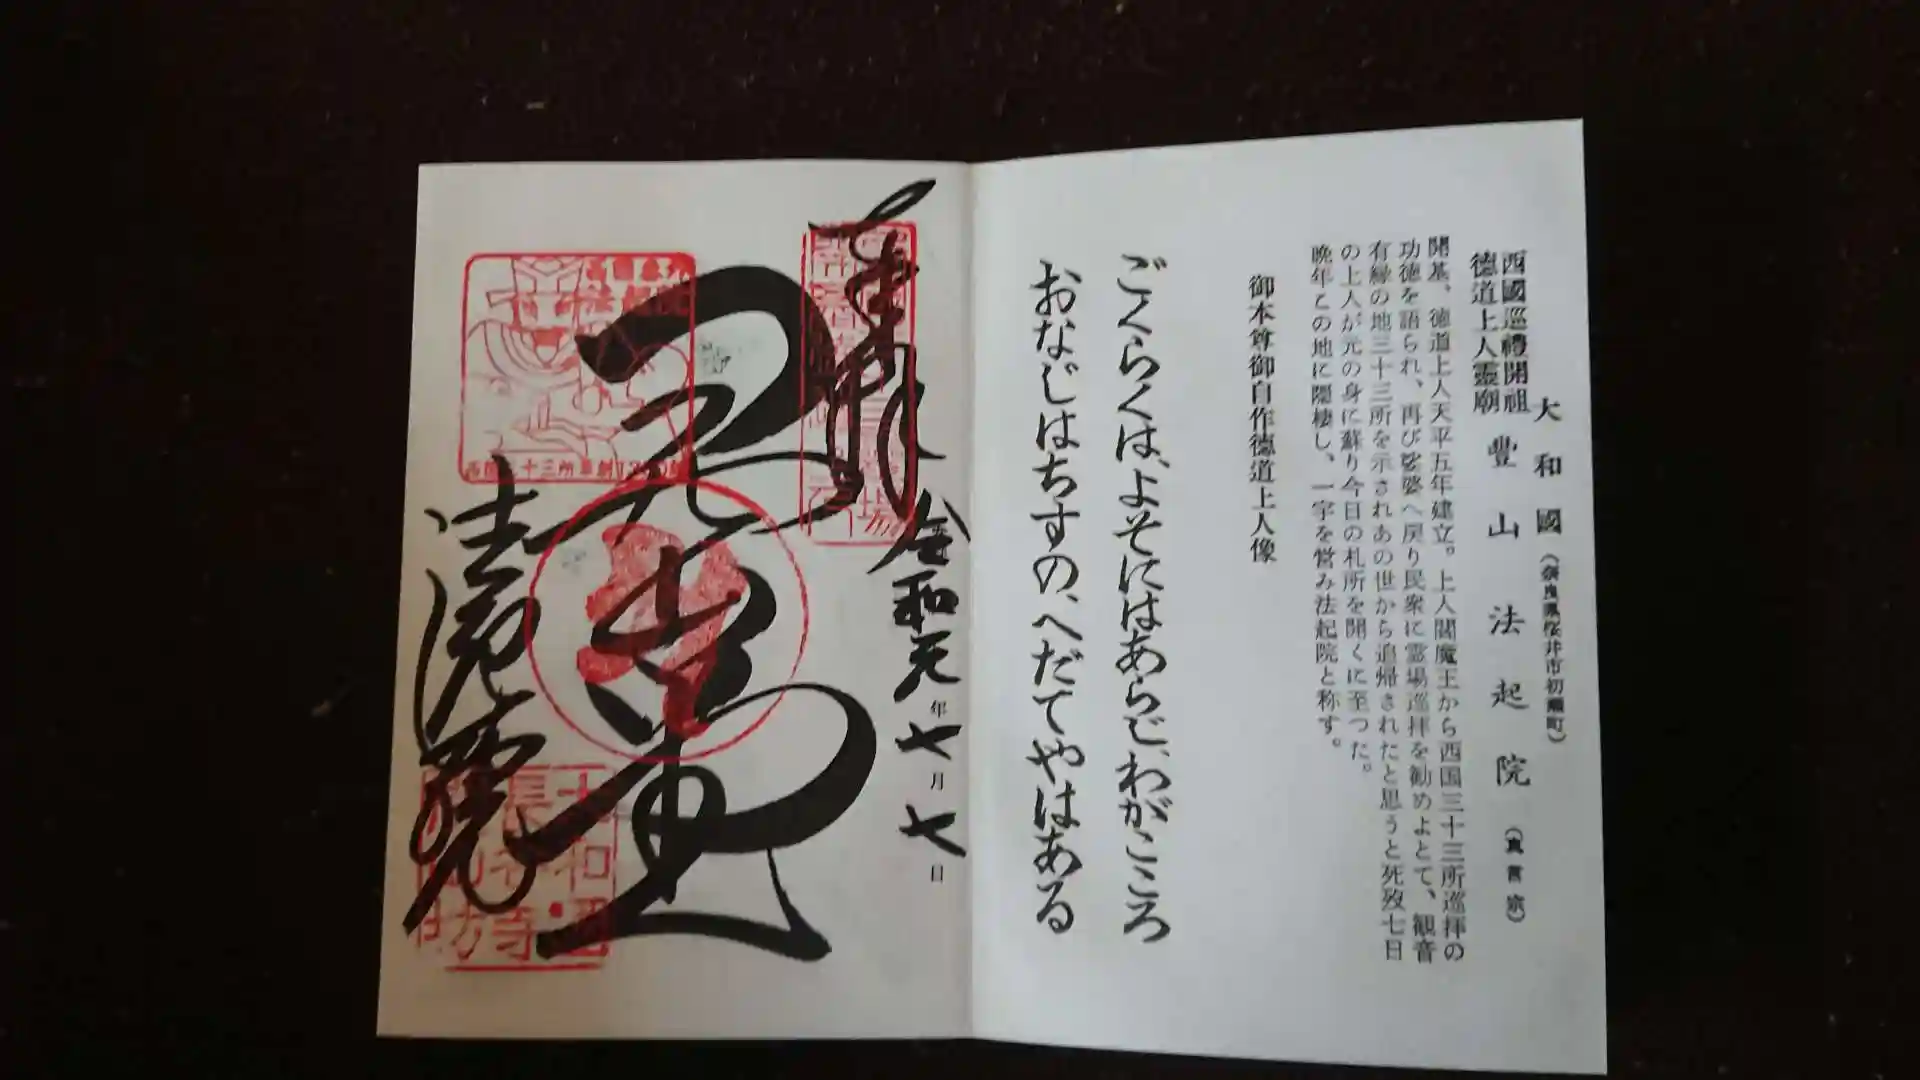 大和國(奈良県桜井市初瀬町)
西國巡禮開祖
德道上人靈廟
豊山法起院(真言宗)
開基、徳道上人天平五年建立。上人閻魔王から西国三十三所巡拝の
功徳を語られ、再び娑婆へ戻り民衆に霊場巡拝を勧めよとて、観音
有縁の地三十三所を示されあの世から追帰されたと思うと死歿七日
の上人が元の身に蘇り今日の札所を開くに至つた。
晩年この地に隠棲し、一宇を営み法起院と称す。
御本尊御自作德道上人像
ごくらくは、よそにはあらじ、わがこころ
おなじはちすの、へだてやはある
奉拜
令和元年七月七日
法起院